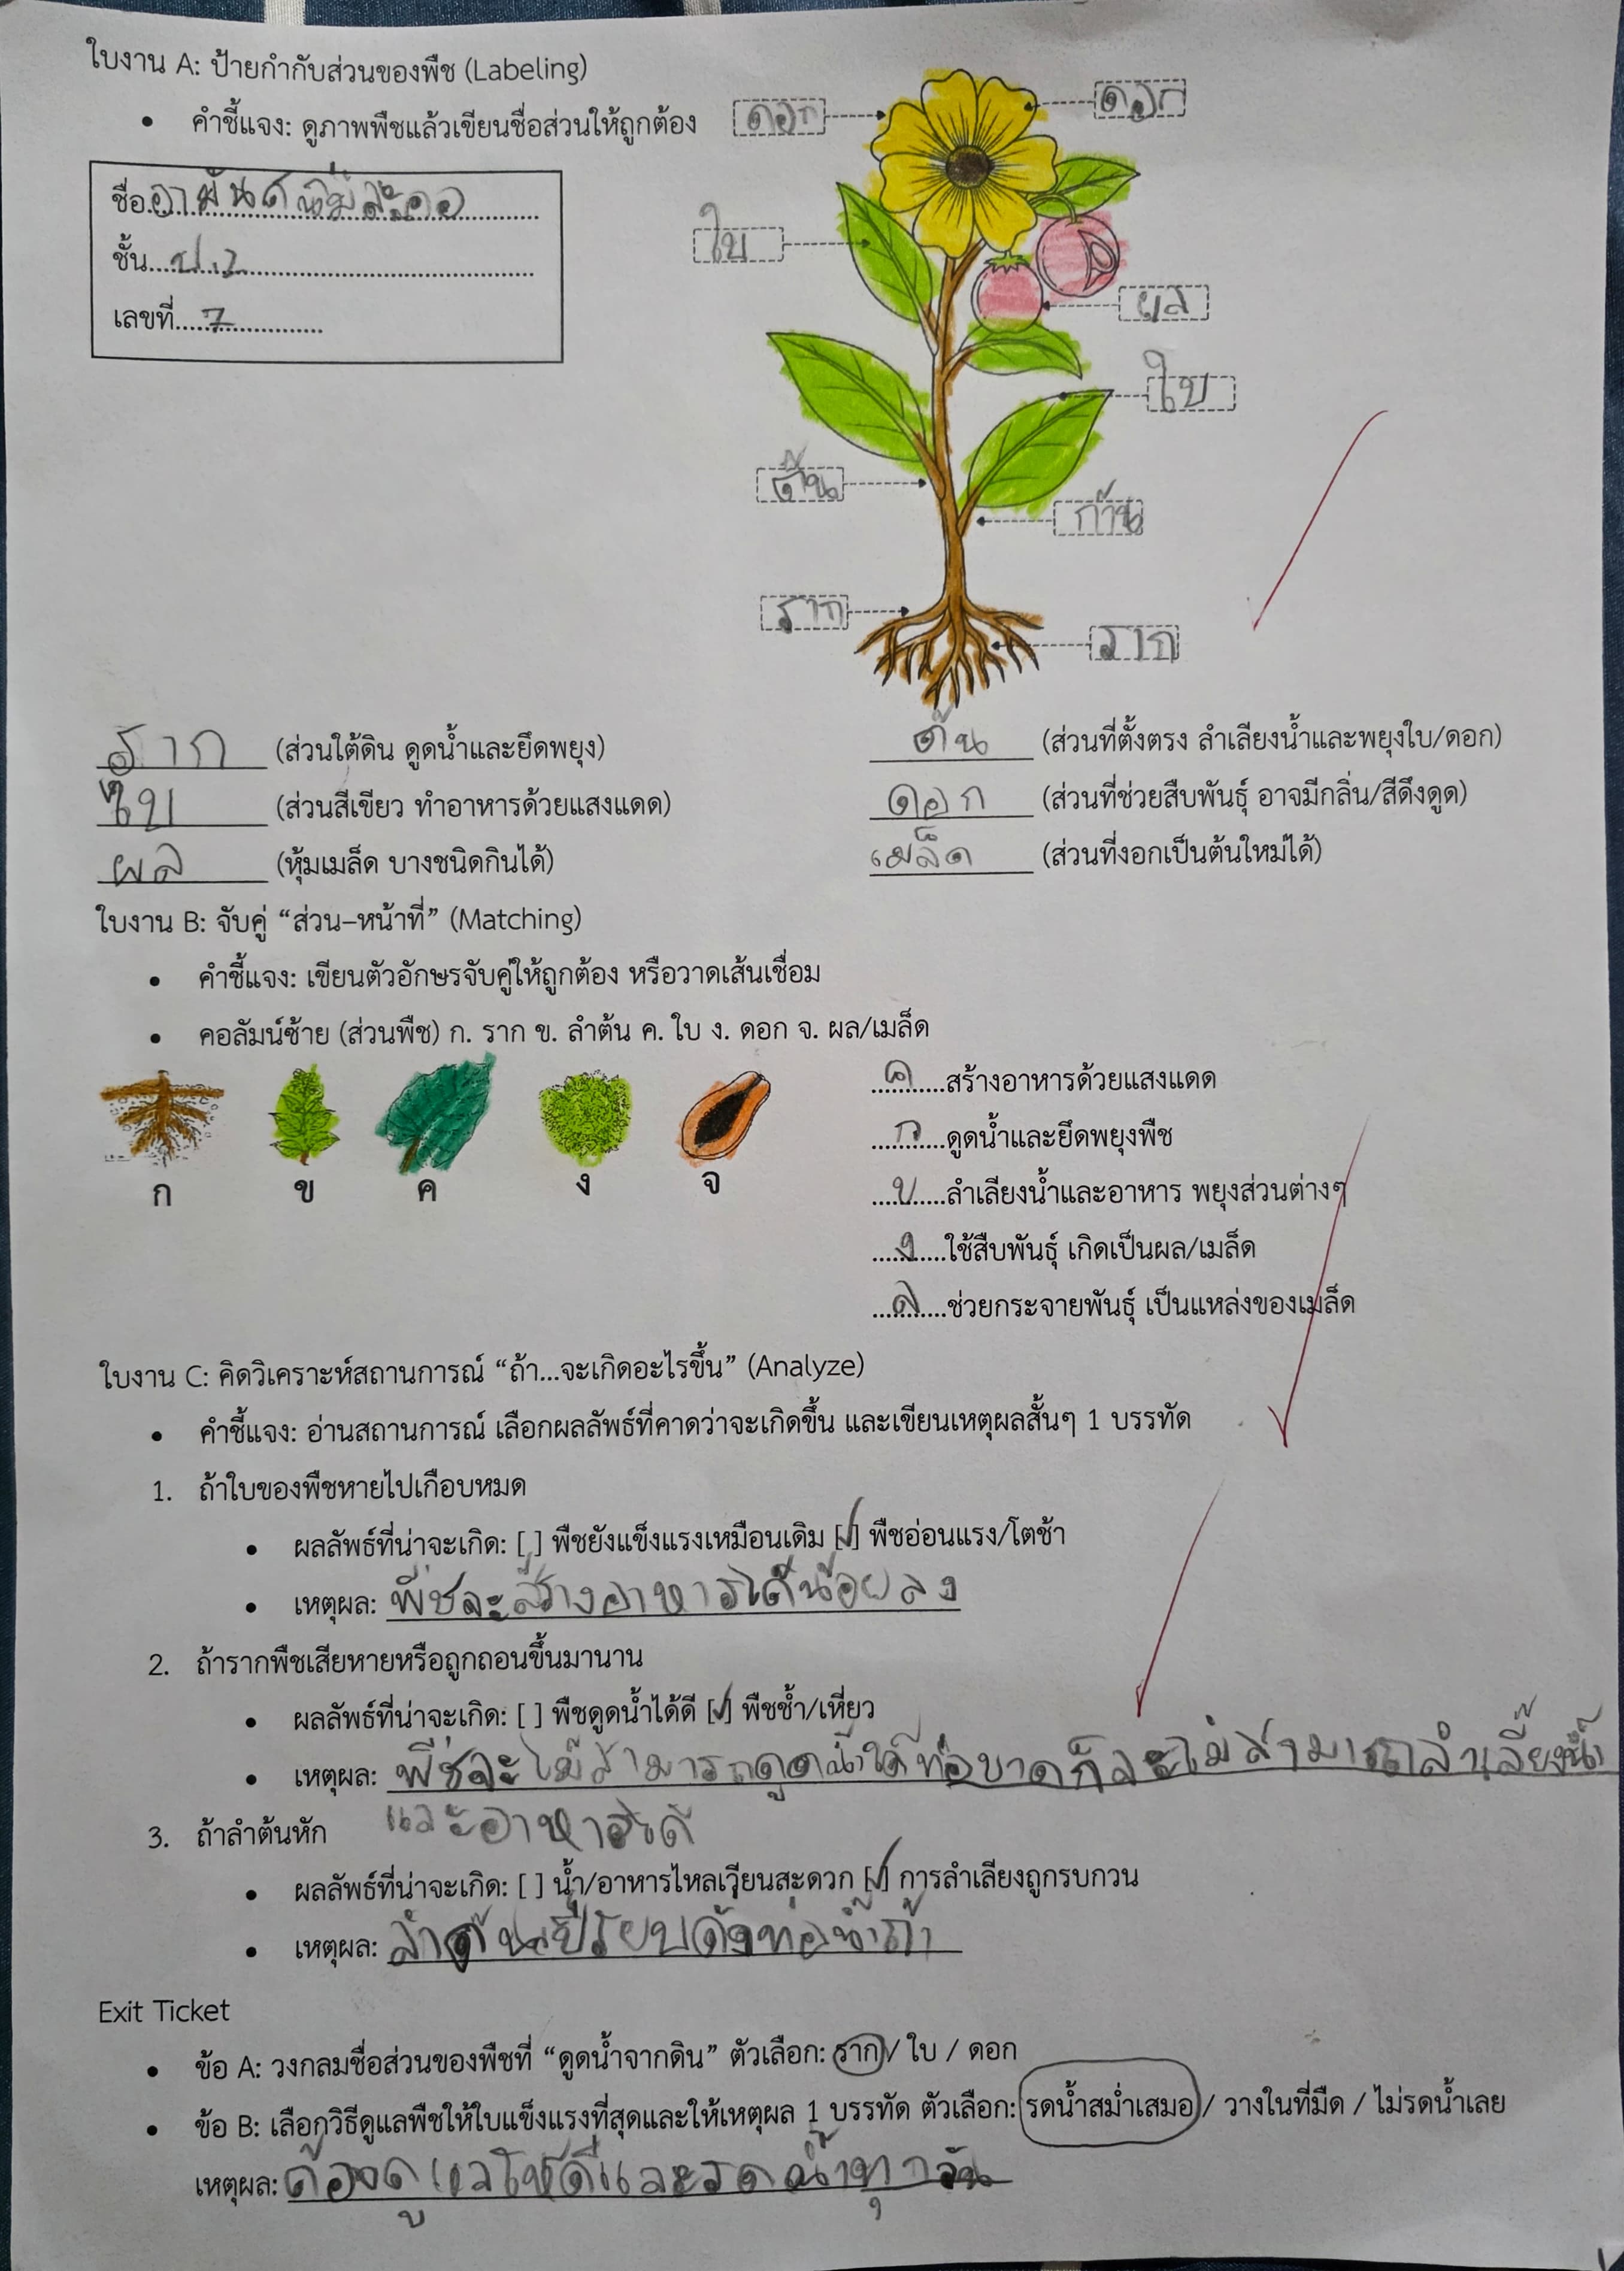 ใบงาน A: ป้ายกำกับส่วนของพืช (Labeling)
• คำชี้แจง: ดูภาพพืชแล้วเขียนชื่อส่วนให้ถูกต้อง
ดอก
ดอก
ชื่อ
ชั้น ป.2
เลขที่ 7
ใบ
ผล
ใบ
ต้น
ก้าน
ราก
ราก
ราก (ส่วนใต้ดิน ดูดน้ำและยึดพยุง)
ต้น (ส่วนที่ตั้งตรง ลำเลียงน้ำและพยุงใบ/ดอก)
ใบ (ส่วนสีเขียว ทำอาหารด้วยแสงแดด)
ดอก (ส่วนที่ช่วยสืบพันธุ์ อาจมีกลิ่น/สีดึงดูด)
ผล (หุ้มเมล็ด บางชนิดกินได้)
เมล็ด (ส่วนที่งอกเป็นต้นใหม่ได้)
ใบงาน B: จับคู่ “ส่วน–หน้าที่” (Matching)
• คำชี้แจง: เขียนตัวอักษรจับคู่ให้ถูกต้อง หรือวาดเส้นเชื่อม
• คอลัมน์ซ้าย (ส่วนพืช) ก. ราก ข. ลำต้น ค. ใบ ง. ดอก จ. ผล/เมล็ด
ก ข ค ง จ
ค สร้างอาหารด้วยแสงแดด
ก ดูดน้ำและยึดพยุงพืช
ข ลำเลียงน้ำและอาหาร พยุงส่วนต่างๆ
ง ใช้สืบพันธุ์ เกิดเป็นผล/เมล็ด
จ ช่วยกระจายพันธุ์ เป็นแหล่งของเมล็ด
ใบงาน C: คิดวิเคราะห์สถานการณ์ “ถ้า...จะเกิดอะไรขึ้น” (Analyze)
• คำชี้แจง: อ่านสถานการณ์ เลือกผลลัพธ์ที่คาดว่าจะเกิดขึ้น และเขียนเหตุผลสั้นๆ 1 บรรทัด
1. ถ้าใบของพืชหายไปเกือบหมด
• ผลลัพธ์ที่น่าจะเกิด: [ ] พืชยังแข็งแรงเหมือนเดิม [✓] พืชอ่อนแรง/โตช้า
• เหตุผล: พืชจะสร้างอาหารได้น้อยลง
2. ถ้ารากพืชเสียหายหรือถูกถอนขึ้นมานาน
• ผลลัพธ์ที่น่าจะเกิด: [ ] พืชดูดน้ำได้ดี [✓] พืชช้ำ/เหี่ยว
• เหตุผล: พืชจะไม่สามารถดูดน้ำได้ท่อขาดก็จะไม่สามารถลำเลี้ยงน้ำ
และอาหารได้
3. ถ้าลำต้นหัก
• ผลลัพธ์ที่น่าจะเกิด: [ ] น้ำ/อาหารไหลเวียนสะดวก [✓] การลำเลียงถูกรบกวน
• เหตุผล: ลำต้นเปรียบดังท่อน้ำถ้า
Exit Ticket
• ข้อ A: วงกลมชื่อส่วนของพืชที่ “ดูดน้ำจากดิน” ตัวเลือก: ราก / ใบ / ดอก
• ข้อ B: เลือกวิธีดูแลพืชให้ใบแข็งแรงที่สุดและให้เหตุผล 1 บรรทัด ตัวเลือก: รดน้ำสม่ำเสมอ / วางในที่มืด / ไม่รดน้ำเลย
เหตุผล: ต้องดูแลให้ดีและรดน้ำทุกวัน